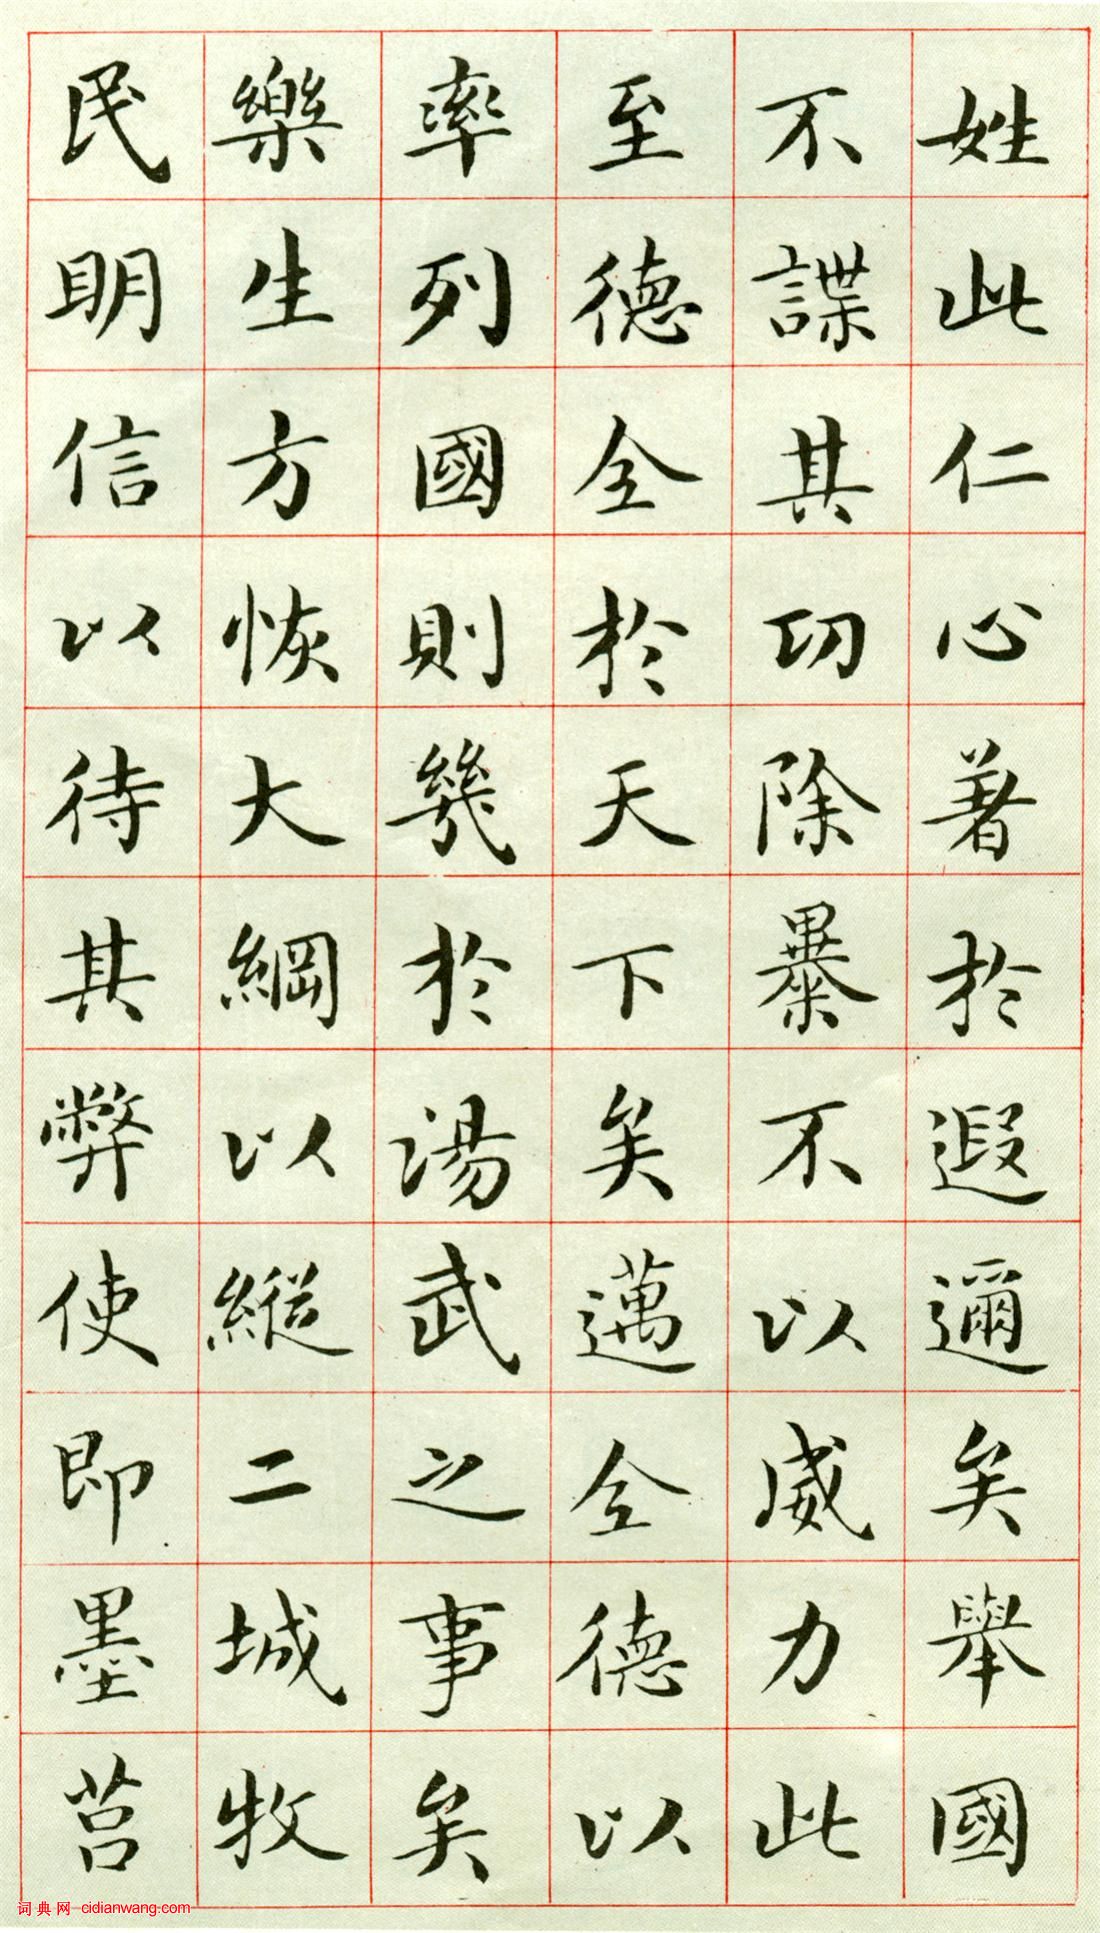 姓此仁心著於遐邇矣舉國
不諜其功除暴不以威力此
至德全於天下矣邁全德以
率列國則幾於湯武之事矣
樂生方恢大綱以縱二城牧
民明信以待其弊使即墨莒
词典网 cidianwang.com